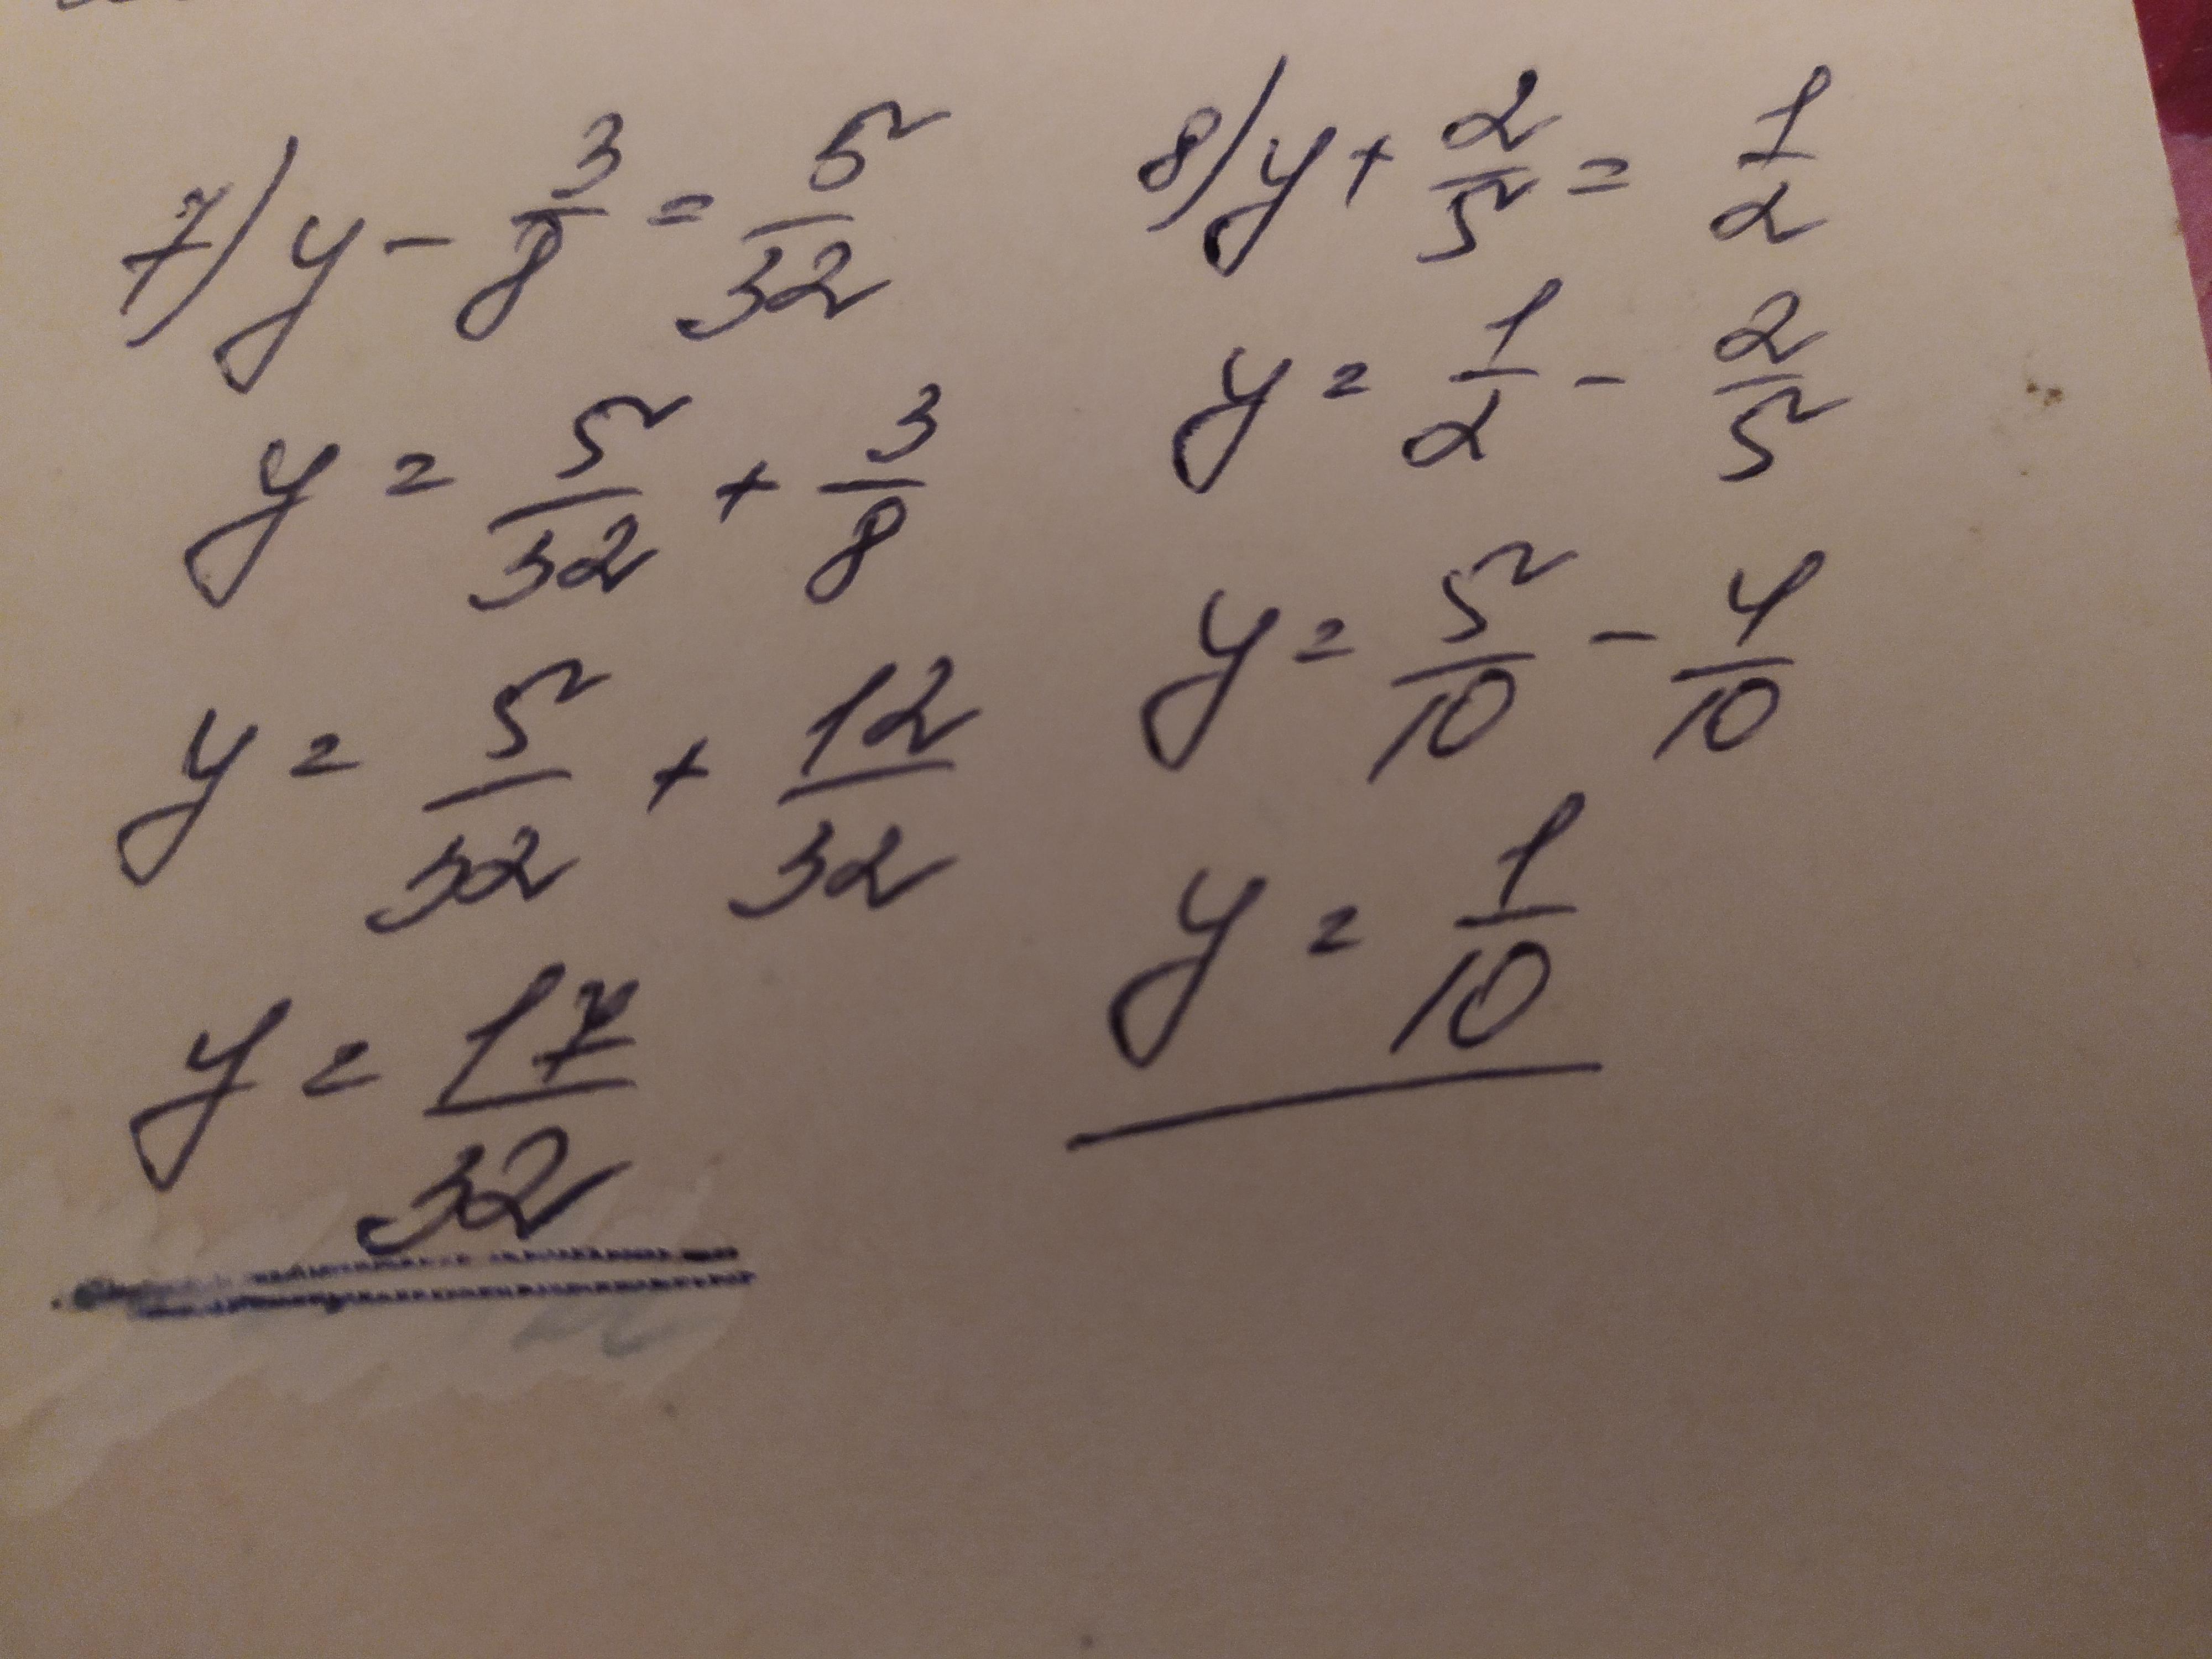 7) y - 3/8 = 5/32
y = 5/32 + 3/8
y = 5/32 + 12/32
y = 17/32
8) y + 2/5 = 1/2
y = 1/2 - 2/5
y = 5/10 - 4/10
y = 1/10